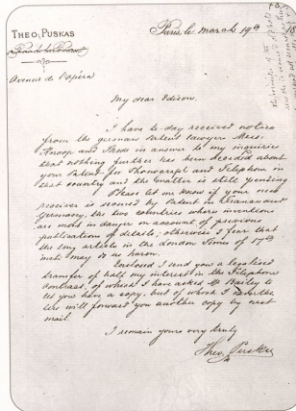 THEO. PUSKAS
Paris le March 19th 18
Avenue de l'opéra
My dear Edison.
I have to-day received notice
from the german Patent lawyers Mess.
Knoop and in answer to my inquiries
that nothing further has been decided about
your Patents for Phonograph and Telephon in
that country and the matter is still pending
Please let me know if your new
receiver is secured by Patent in and
Germany, the two countries where inventions
are most in danger on account of previous
publication of details; otherwise I fear that
the long article in the London Times of 17th
inst. may do us harm.
Enclosed I send you a legalised
transfer of half my interest in the Telephone
Contract, of which I have asked Mr Bailey to
let you have a copy, but of which I
will forward you another copy by next
mail
I remain yours very truly
Theo. Puskas